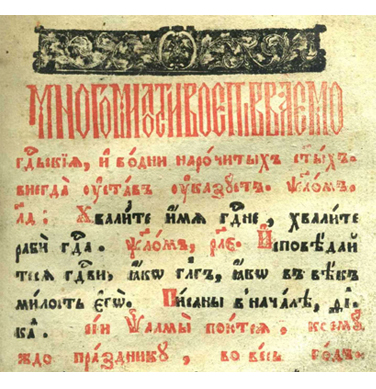 МНОГОМИЛОСТИВОЕ ПѢВАЕМО
гдⷭ҇ьскїѧ, и҆ во дни нарочитыхъ ст҃ыхъ.
внегда̀ оу҆ста́въ оу҆ка́зꙋетъ. ѱало́мъ,
рл҃д: Хвали́те и҆́мѧ гдⷭ҇не, хвали́те
раби̑ гдⷭ҇а. ѱало́мъ, рл҃є. И҆сповѣ́дай
тесѧ гдⷭ҇ви, ꙗ҆́кѡ бл҃гъ, ꙗ҆́кѡ въ вѣ́къ
ми́лость є҆гѡ̀. Пи́саны в нача́лѣ,
сі́и ѱалмы̀ пою́тсѧ, коемꙋ́
ждо пра́здникꙋ, во ве́сь го́дъ.